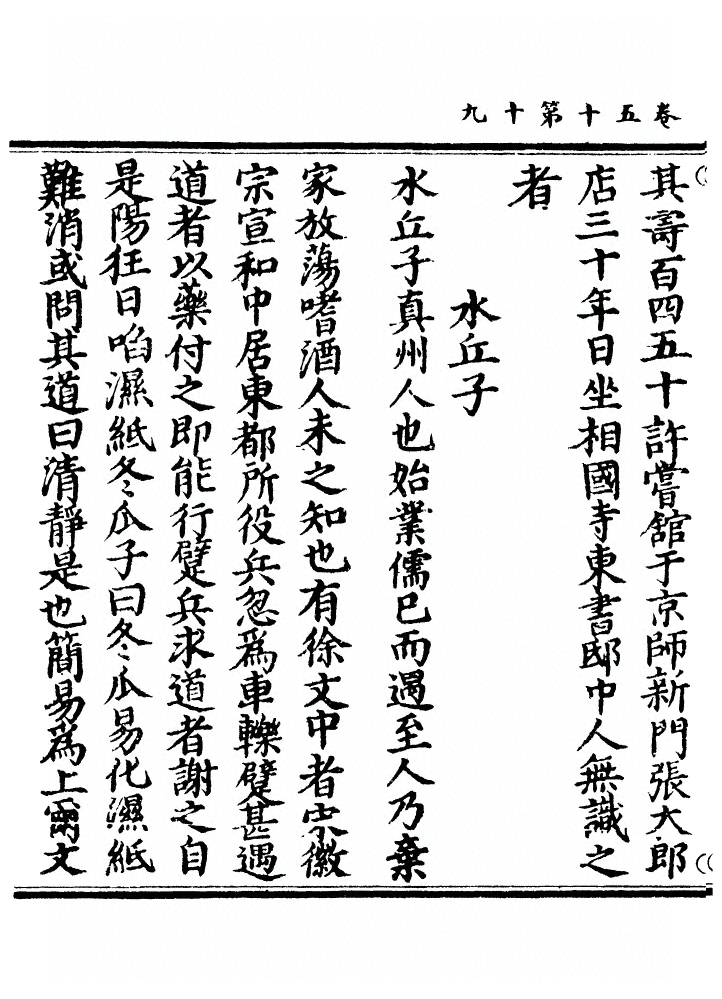 卷五十第十九
其壽百四五十許嘗舘于京師新門張大郎
店三十年日坐相國寺東書邸中人無識之
者
水丘子
水丘子真州人也始業儒已而遇至人乃棄
家放蕩嗜酒人未之知也有徐文中者宋徽
宗宣和中居東都所役兵忽爲車轢躄甚遇
道者以藥付之即能行躄兵求道者謝之自
是陽狂日啗濕紙冬瓜子曰冬瓜易化濕紙
難消或問其道曰清靜是也簡易爲上爾文